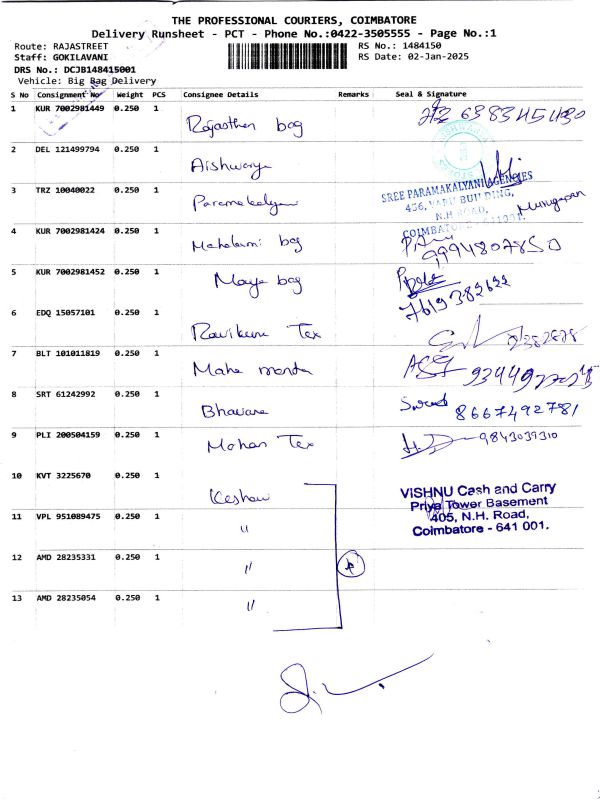 THE PROFESSIONAL COURIERS, COIMBATORE
Delivery Runsheet - PCT - Phone No.:0422-3505555 - Page No.:1
Route: RAJASTREET
RS No.: 1484150
Staff: GOKILAVANI
RS Date: 02-Jan-2025
DRS No.: DCJB148415001
Vehicle: Big Bag Delivery
S No Consignment No Weight PCS Consignee Details Remarks Seal & Signature
1 KUR 7002981449 0.250 1 Rajasthan bag 6383445430
2 DEL 121499794 0.250 1 Aishwarya
3 TRZ 10040022 0.250 1 Paramakalyani
SREE PARAMAKALYANI AGENCIES
456, VAPU BUILDING,
N.H ROAD, Murugapan
COIMBATORE
4 KUR 7002981424 0.250 1 Mahalaxmi bag 9994807850
5 KUR 7002981452 0.250 1 Maya bag 7619382622
6 EDQ 15057101 0.250 1 Ravikumar Tex
7 BLT 101011819 0.250 1 Maha
8 SRT 61242992 0.250 1 Bhavana 8667492781
9 PLI 200504159 0.250 1 Mohan Tex 9843039310
10 KVT 3225670 0.250 1 Keshav
VISHNU Cash and Carry
Priya Tower Basement
405, N.H. Road,
Coimbatore - 641 001.
11 VPL 951089475 0.250 1 "
12 AMD 28235331 0.250 1 "
13 AMD 28235054 0.250 1 "